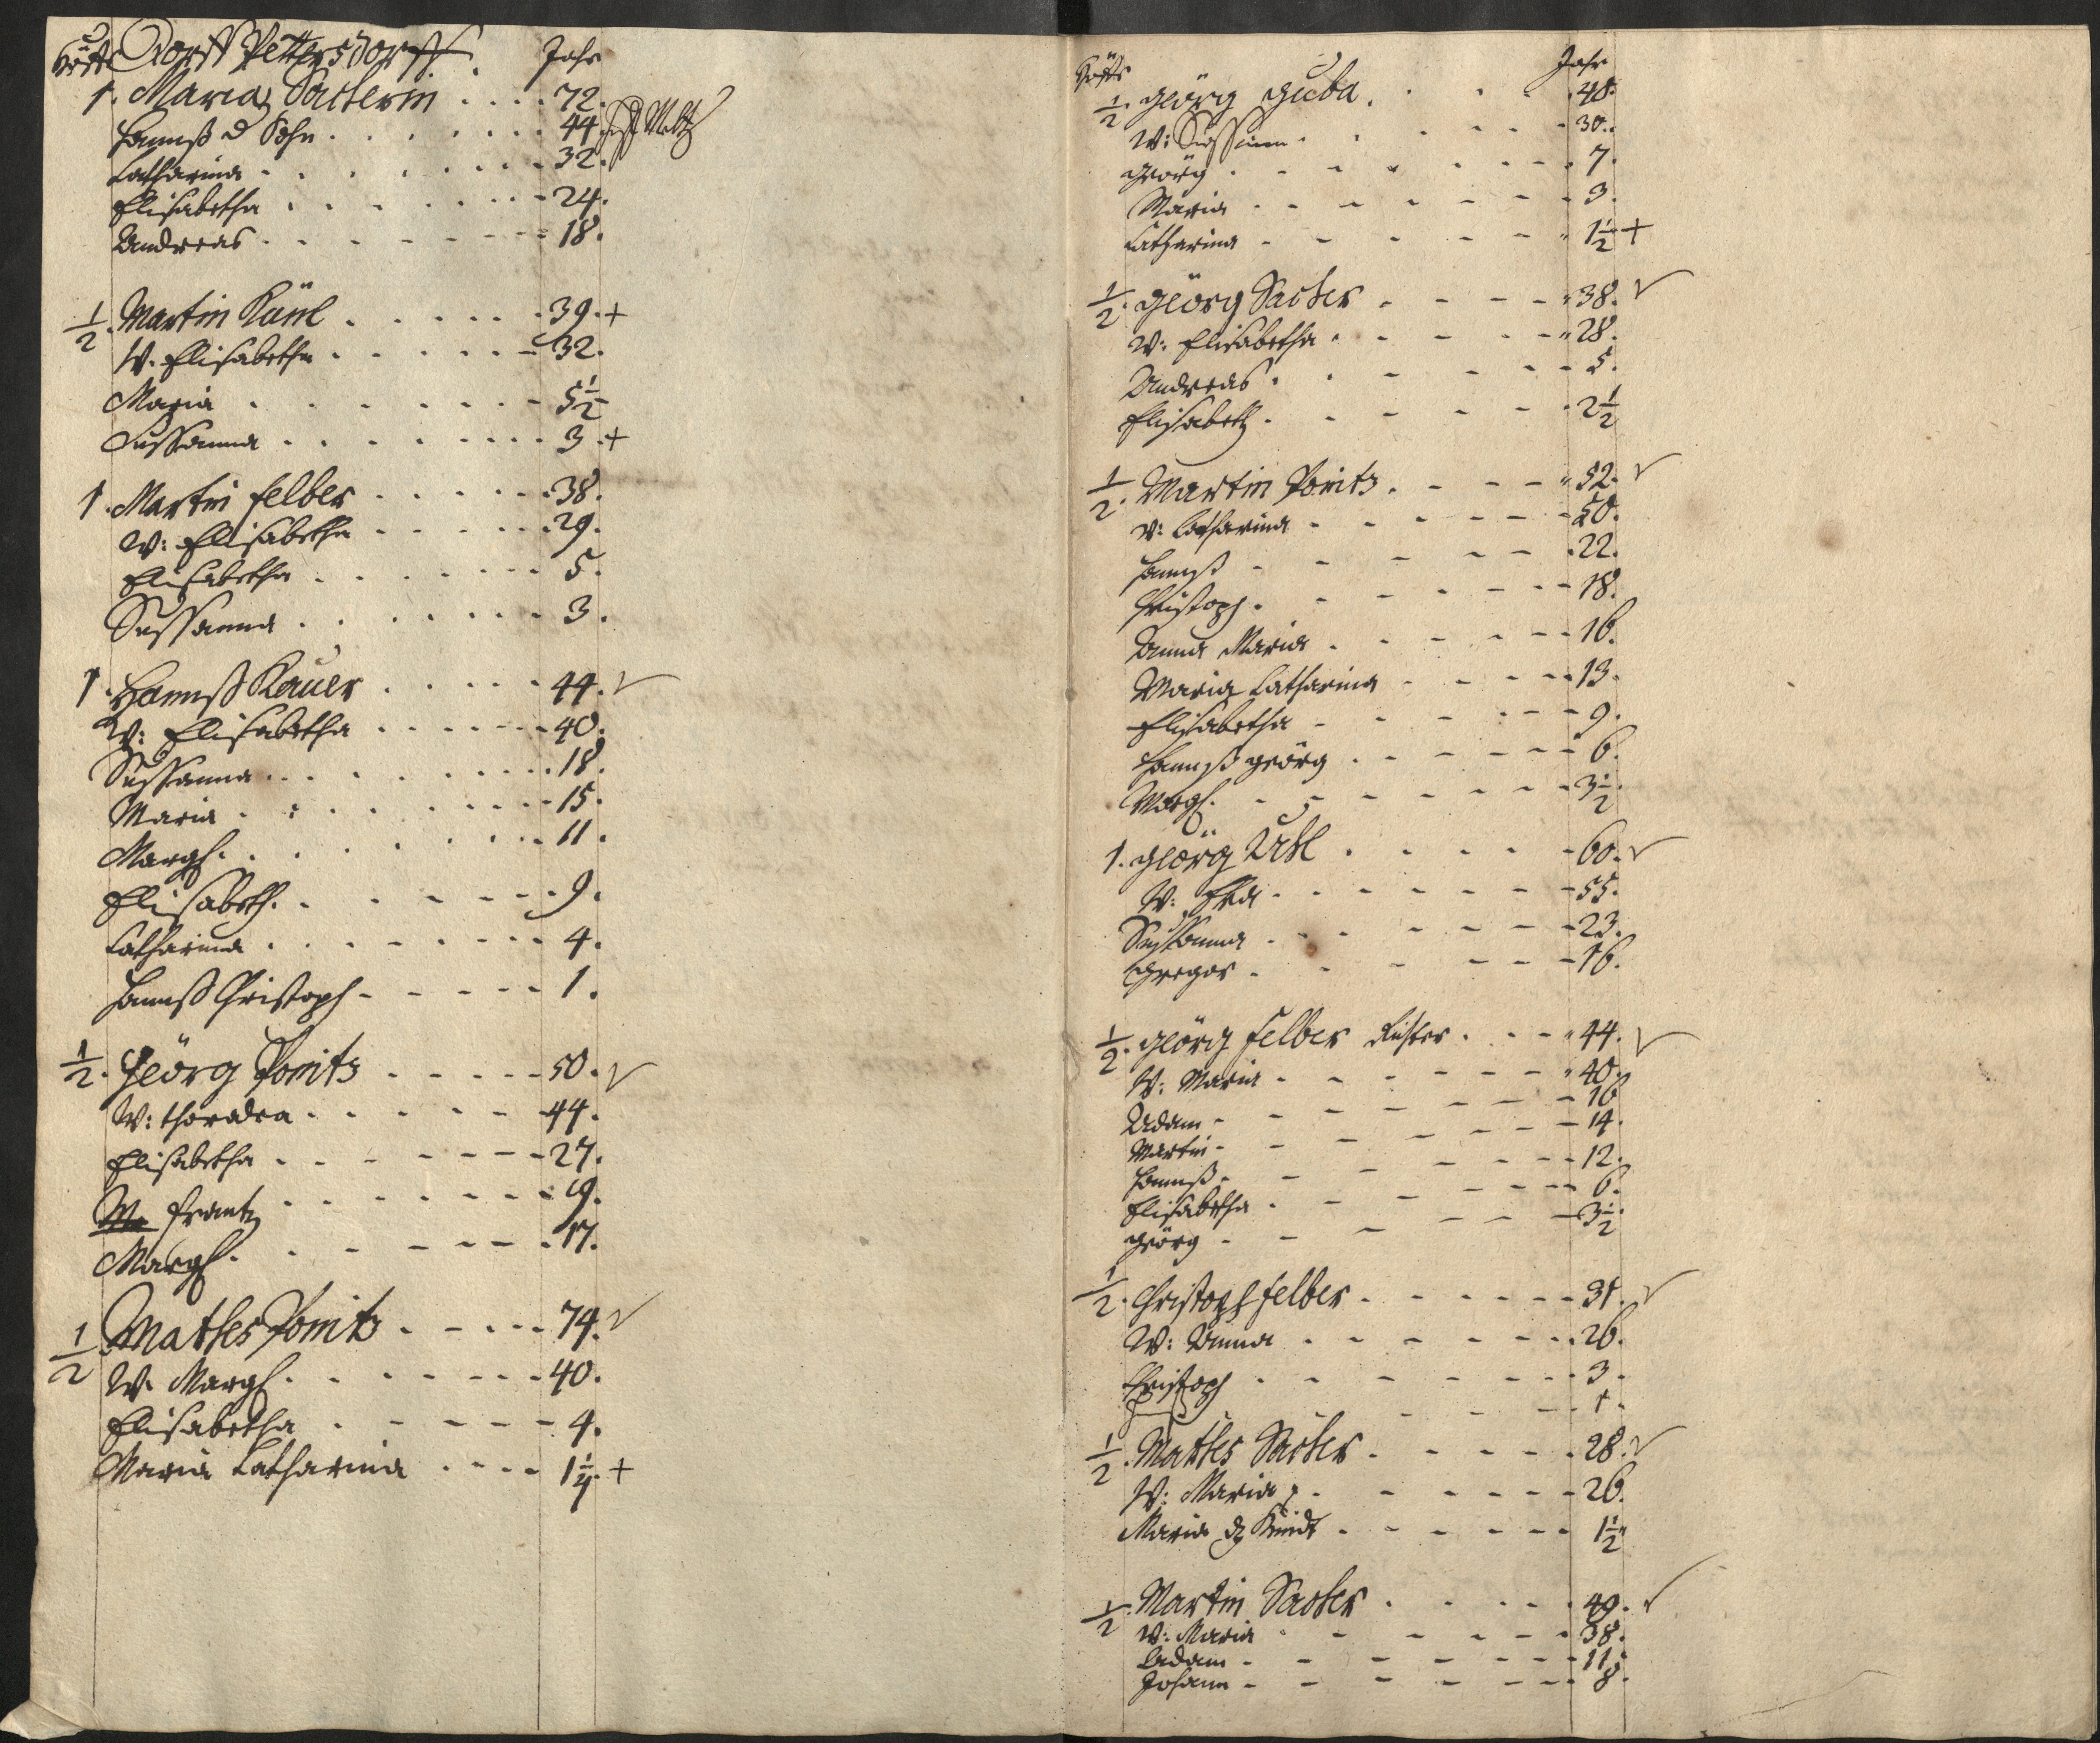 Höffe Dorff Pettersdorff. Jahr
1. Maria Sacherin .... 72.
Hannß d Sohn ....... 44.
Catharina ....... 32.
Elisabetha ....... 24.
Andreas ....... 18.
1/2. Martin Känl ..... 39. +
W. Elisabetha ..... 32.
Maria ....... 5 1/2
Sussanna ....... 3. +
1. Martin Felber ..... 38.
W: Elisabetha ..... 29.
Elisabetha ....... 5.
Sussanna ....... 3.
1. Hannß Kauer ..... 44. √
W: Elisabetha ...... 40.
Sussanna ........ 18.
Maria ........ 15.
Margh. ....... 11.
Elisabeth. ...... 9.
Catharina ....... 4.
Hannß Christoph ..... 1.
1/2. Geörg Ponitz ..... 50. √
W: ..... 44.
Elisabetha ....... 27.
Frantz ....... 9.
Margh. ...... 17.
1/2 Mathes Ponitz ..... 74. √
W. Margh. ....... 40.
Elisabetha ..... 4.
Maria Catharina .... 1 1/4. +
Höffe Jahr
1/2. Geörg Guba .... 48.
W: Sussanna ...... 30.
Geörg ....... 7.
Maria ....... 3.
Catharina ...... 1 1/2 +
1/2. Geörg Sacher .... 38. √
W: Elisabetha ..... 28.
Andreas ...... 5.
Elisabeth ...... 2 1/2
1/2. Martin Ponitz .... 52. √
W: Catharina ...... 50.
Hannß ...... 22.
Christoph ...... 18.
Anna Maria ..... 16.
Maria Catharina .... 13.
Elisabetha ...... 9.
Hannß Geörg ...... 6.
Margh. ....... 3 1/2.
1. Geörg ..... 60. √
W: Eva ...... 55.
Sussanna ...... 23.
Gregor ...... 16.
1/2. Geörg Felber Richter ... 44. √
W: Maria ...... 40.
Adam ....... 16
Martin ....... 14.
Hannß ....... 12.
Elisabetha ...... 6.
Geörg ...... 3 1/2
1/2. Christoph Felber ...... 31. √
W: Anna ...... 26.
Christoph ....... 3.
... 1.
1/2. Mathes Sacher ..... 28. √
W: Maria ...... 26.
Maria dz Kindt ...... 1 1/2
1/2. Martin Sacher ..... 49. √
W: Maria ...... 38.
Adam ....... 11.
Johann ...... 8.